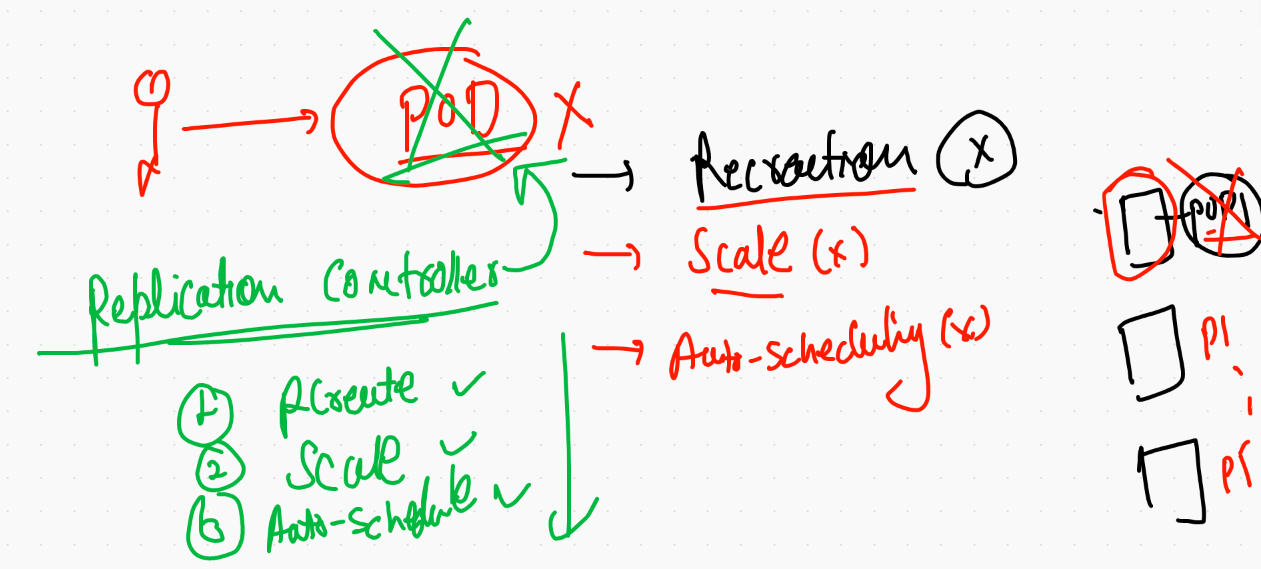 POD X
Recreation (X)
Scale (x)
Auto-scheduling (x)
Replication Controller
1 Recreate ✓
2 Scale ✓
3 Auto-schedule ✓
POD1
P1
P1